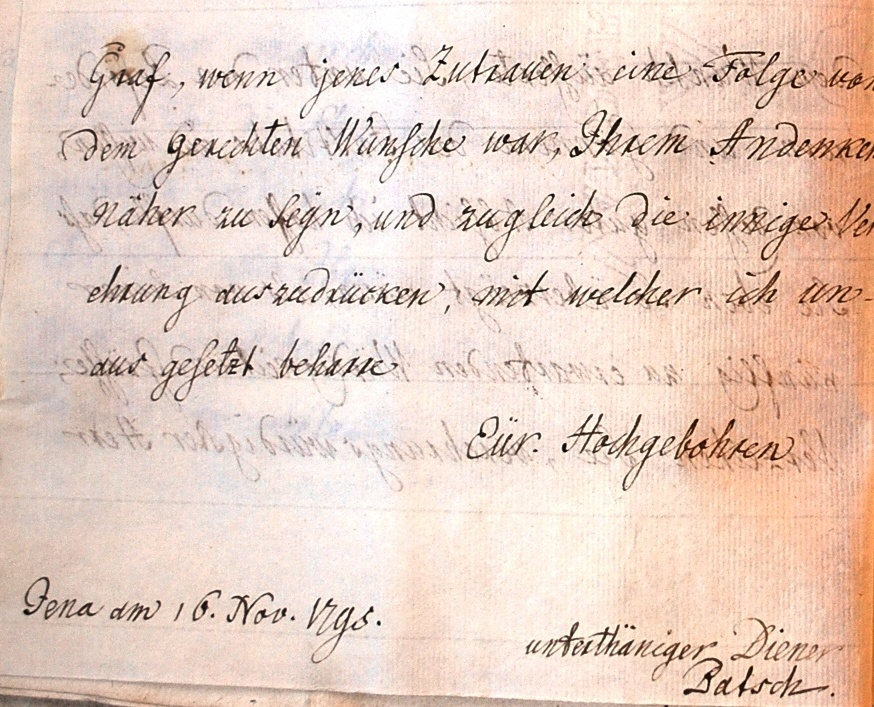 Graf, wenn jenes Zutrauen eine Folge von
dem gerechten Wunsche war, Ihrem Andenken
näher zu seÿn, und zugleich die innige Ver
ehrung auszudrücken, mit welcher ich un-
ausgesetzt beharre
Eür. Hochgebohren
Jena am 16. Nov. 1795.
unterthäniger Diener
Batsch.